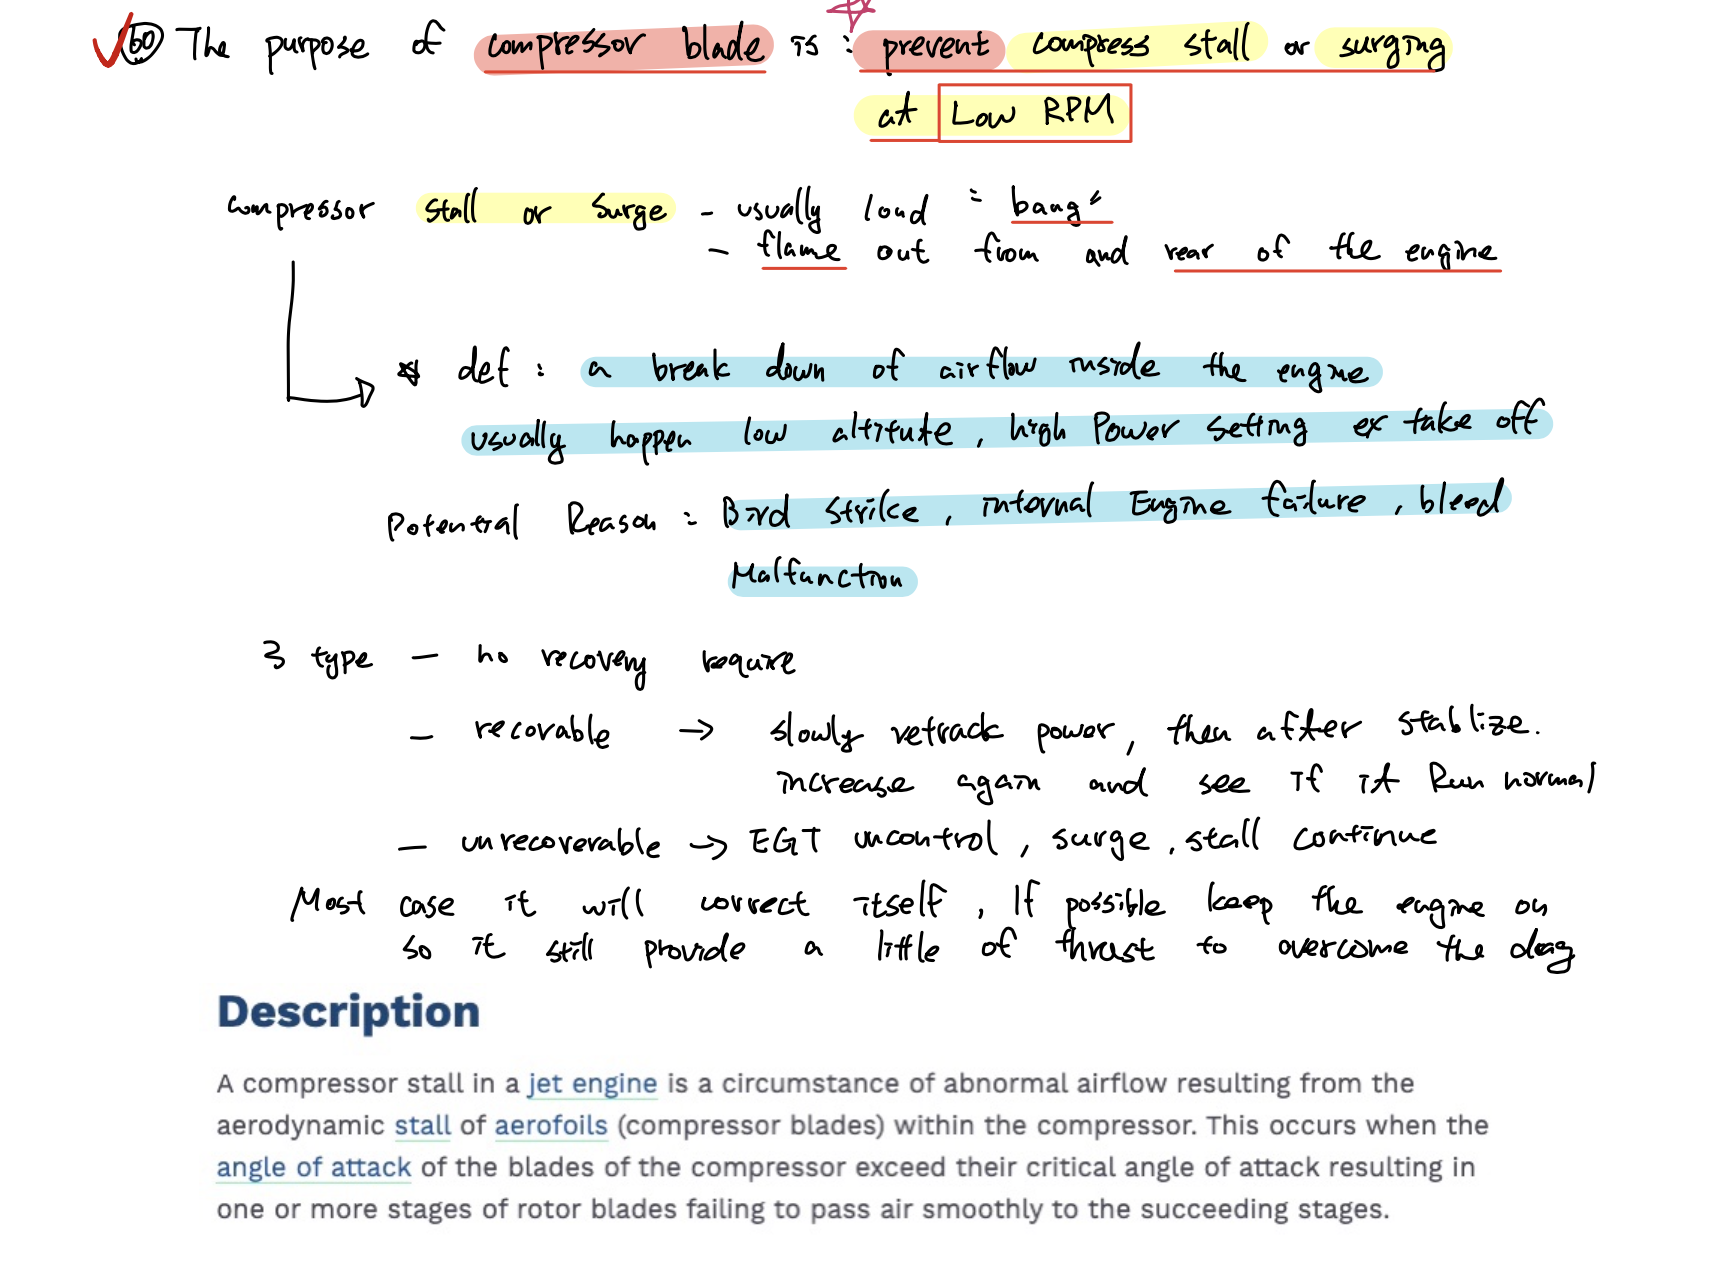 60 The purpose of compressor blade is : prevent compress stall or surging
at Low RPM
compressor stall or surge - usually loud "bang"
- flame out from and rear of the engine
* def : a break down of airflow inside the engine
usually happen low altitute, high Power setting ex take off
Potential Reason : Bird strike, internal Engine failure, bleed
Malfunction
3 type - no recovery require
- recovable → slowly retrack power, then after stablize.
increase again and see if it Run normal
- unrecoverable → EGT uncontrol, surge, stall continue
Most case it will correct itself, If possible keep the engine on
so it still provide a little of thrust to overcome the drag
Description
A compressor stall in a jet engine is a circumstance of abnormal airflow resulting from the
aerodynamic stall of aerofoils (compressor blades) within the compressor. This occurs when the
angle of attack of the blades of the compressor exceed their critical angle of attack resulting in
one or more stages of rotor blades failing to pass air smoothly to the succeeding stages.